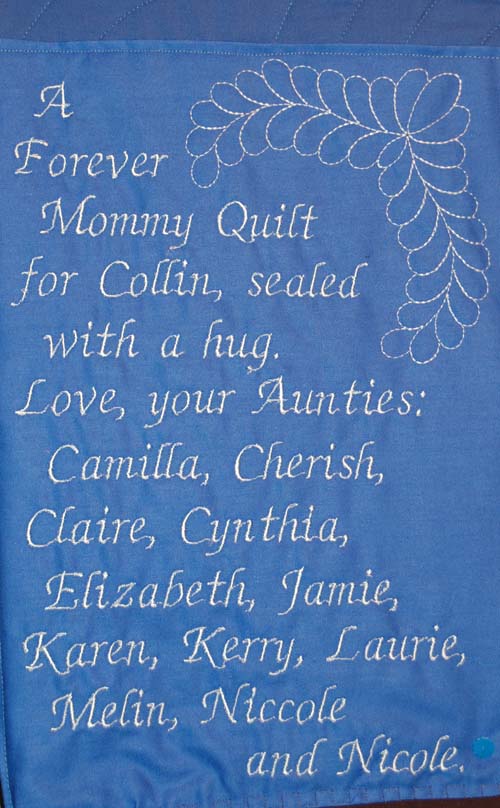 A
Forever
Mommy Quilt
for Collin, sealed
with a hug.
Love, your Aunties:
Camilla, Cherish,
Claire, Cynthia,
Elizabeth, Jamie,
Karen, Kerry, Laurie,
Melin, Niccole
and Nicole.